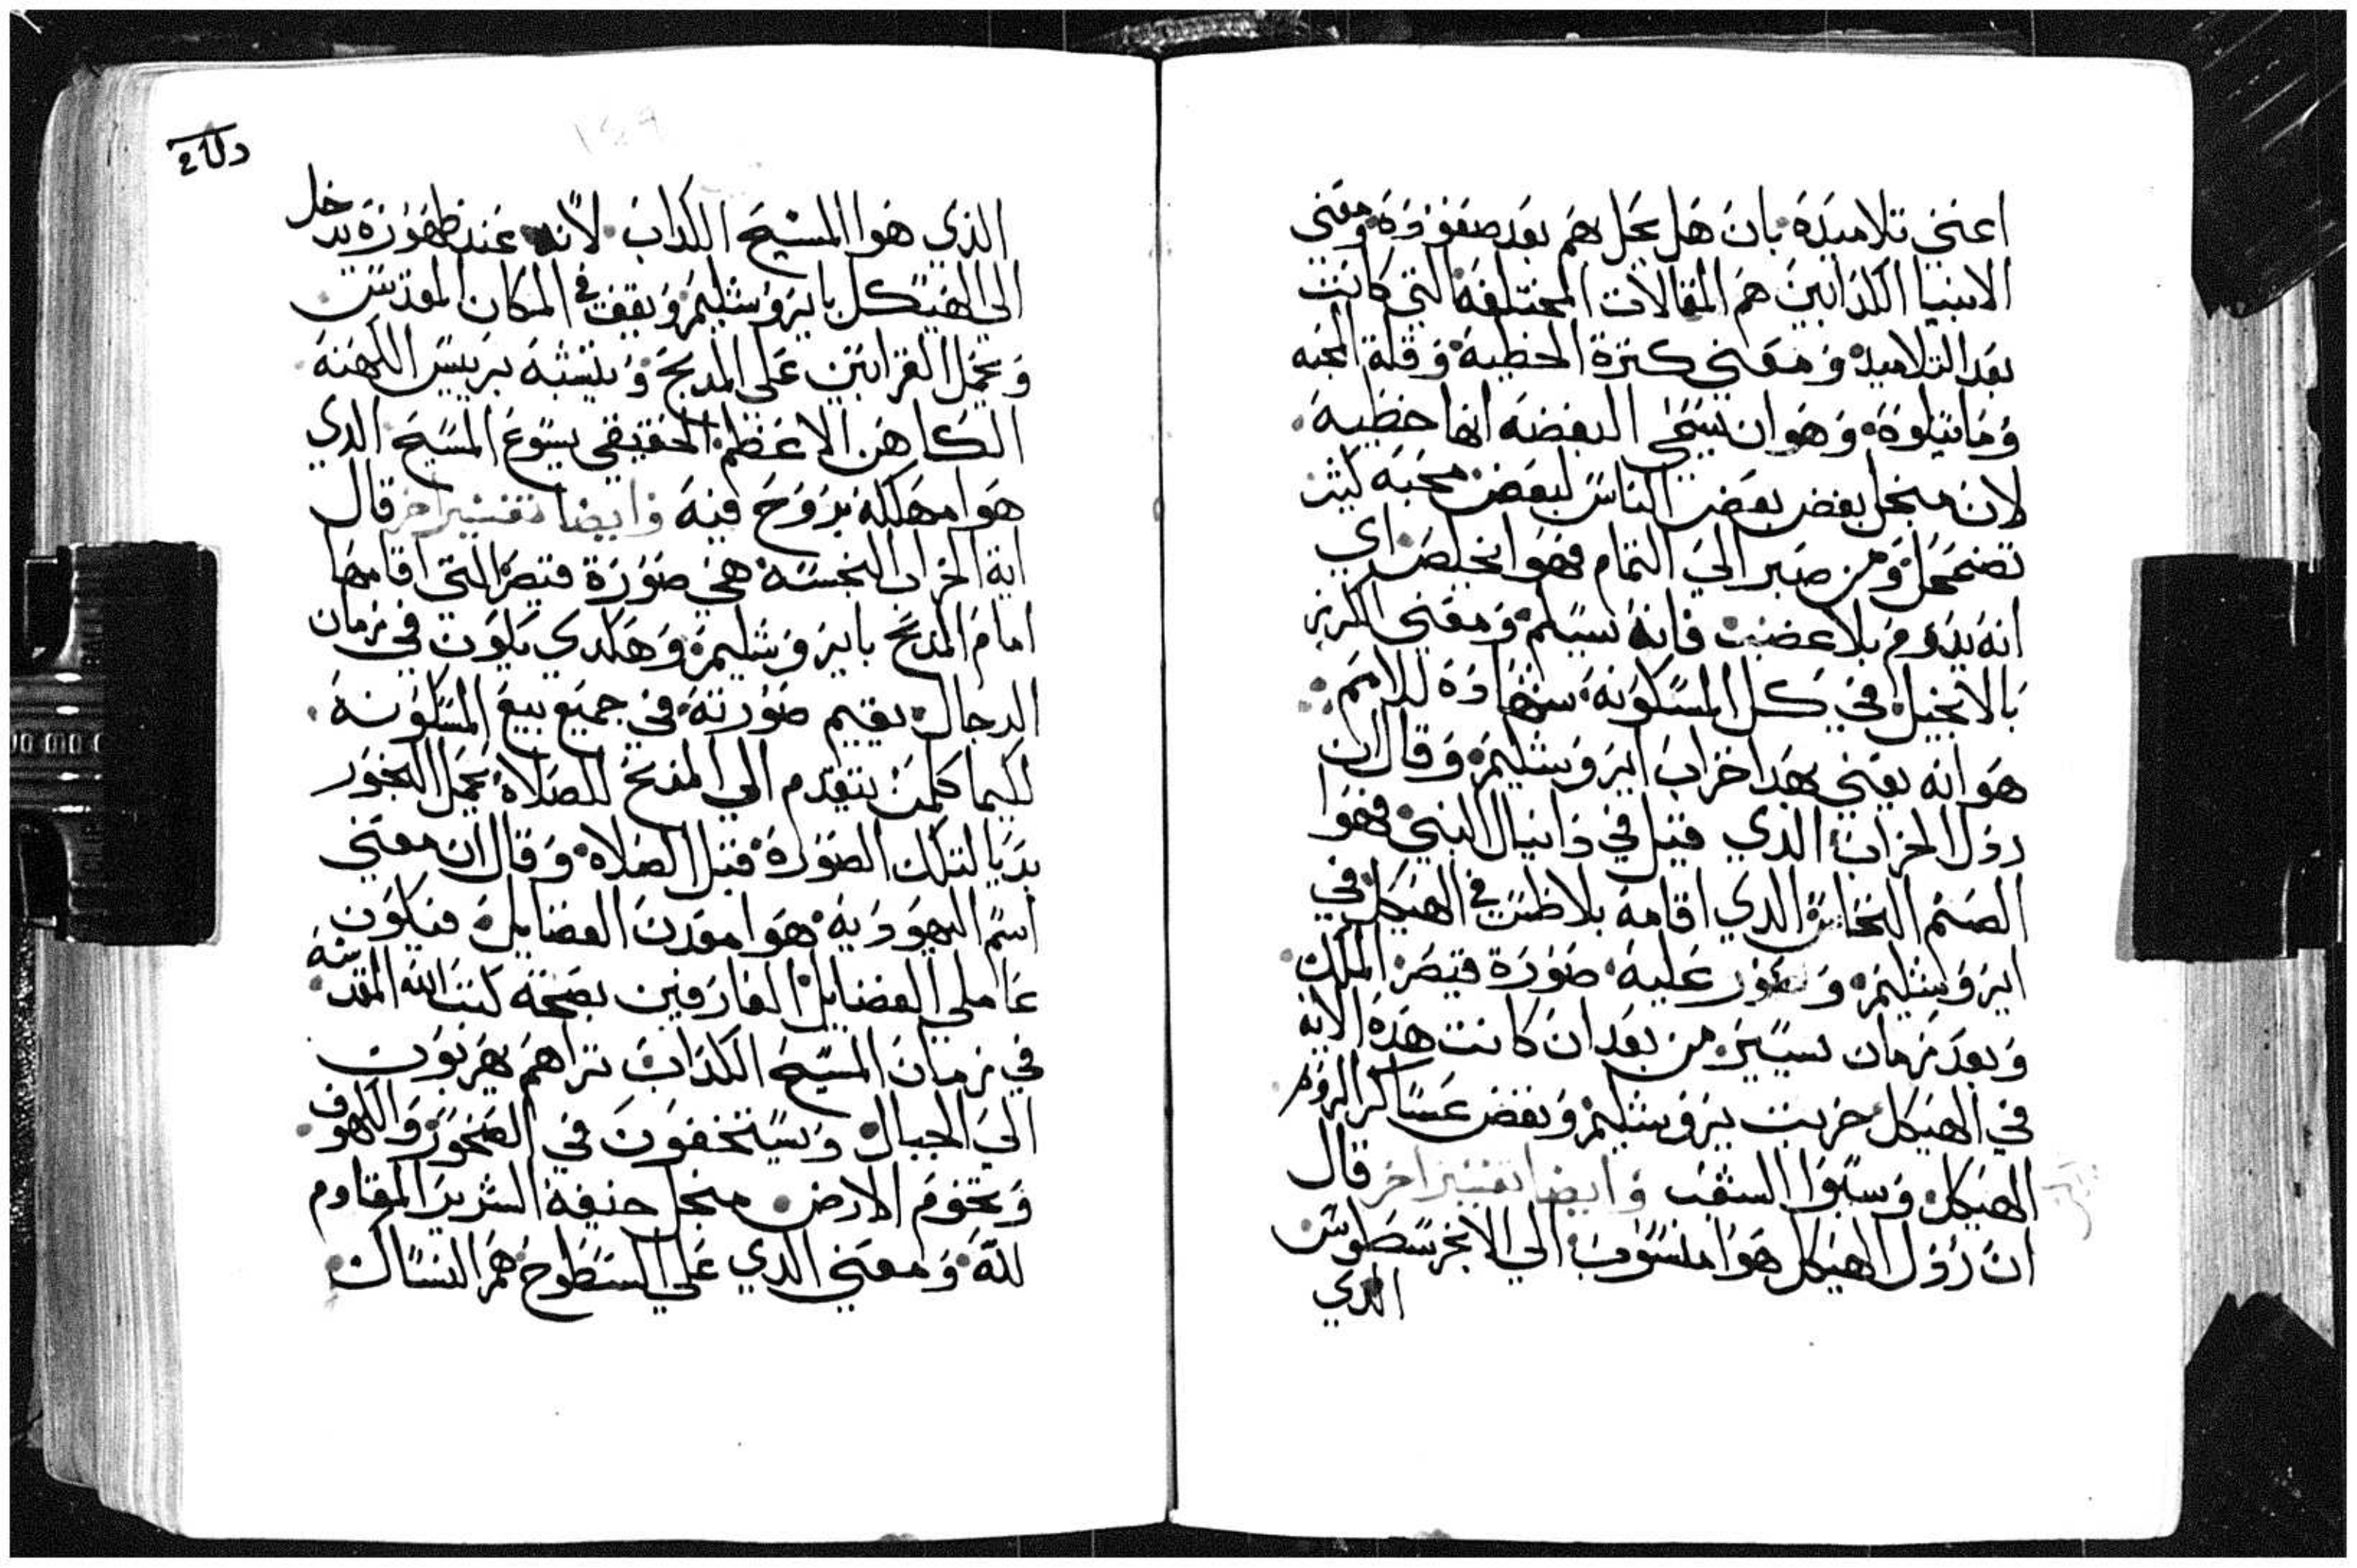 اعني تلاميده بان هل يحل بهم بعد صعوده ومعني
الانبيا الكدابين هم المقالات المختلفة التي كانت
بعد التلاميد ومعني كترة الخطية وقلة المحبه
وما يتلوه وهو ان تسمي البغضه انها خطية
لان منجل بغض بعض الناس لبعض محبة كثير
تضمحل ومن صبر الي التمام فهوا يخلص اي
انه يدوم بلا غضب فانه يسلم ومعني الكرز
بالانجيل في كل المسكونه شهاده للامم
هو انه يعني بهدا خراب ايروشليم وقال ان
ردل الخراب الدي قيل في دانيال النبي فهوا
الصنم النحاس الدي اقامه بلاطس في الهيكل في
ايروشليم وصور عليه صورة قيصر الملك
وبعد زمان يسير من بعد ان كانت هده الايه
في الهيكل خربت يروشليم ونقض عساكر الروم
الهيكل وسبوا الشعب وايضا تفسير اخر قال
ان ردول الهيكل هوا منسوب الي الانخرسطوس
الدي
الدي هوا المسيح الكداب لانه عند ظهوره يدخل
الي الهيكل بايروشليم ويقف في المكان المقدس
ويحمل القرابين علي المدبح ويتشبه بريس الكهنه
الكاهن الاعظم الحقيقي يسوع المسيح الدي
هوا مهلكه بروح فيه وايضا تفسير اخر قال
اية الخراب النجسه هي صورة قيصر التي اقامها
امام المدبح بايروشليم وهكدي يكون في زمان
الدجال يقيم صورته في جميع بيع المسكونه
لكيما كلمن يتقدم الي المدبح للصلاة يحمل البخور
بديا لتلك الصورة قبل الصلاه وقال ان معني
اسم اليهودية هوا معدن الفضايل فيكون
عاملي الفضايل العارفين بصحة كتب الله المقدسه
في زمان المسيح الكداب تراهم يهربون
الي الجبال ويستخفون في الصخور والكهوف
وتخوم الارض منجل خيفة الشرير المقاوم
لله ومعني الدي علي السطوح هم النساك